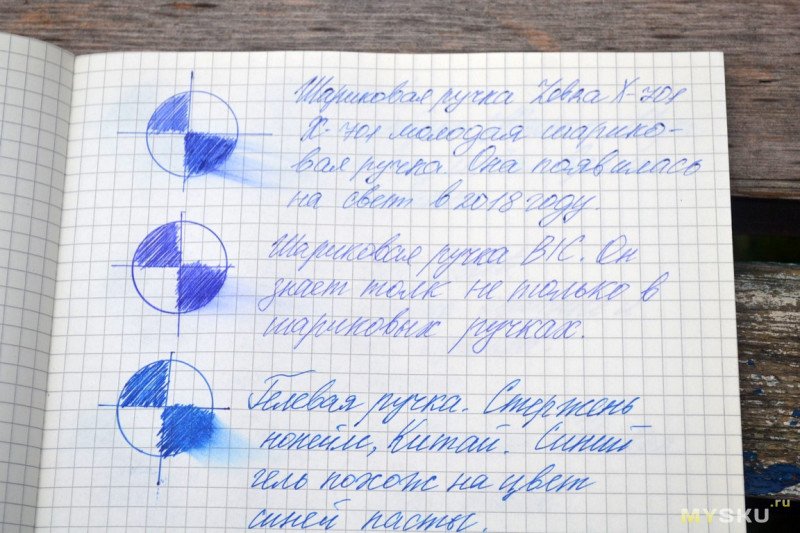 Шариковая ручка Zebra X-701
X-701 молодая шарико-
вая ручка. Она появилась
на свет в 2018 году.
Шариковая ручка BIC. Он
знает толк не только в
шариковых ручках.
Гелевая ручка. Стержень
нонейм, Китай. Синий
гель похож на цвет
синей пасты.
MYSKU.ru